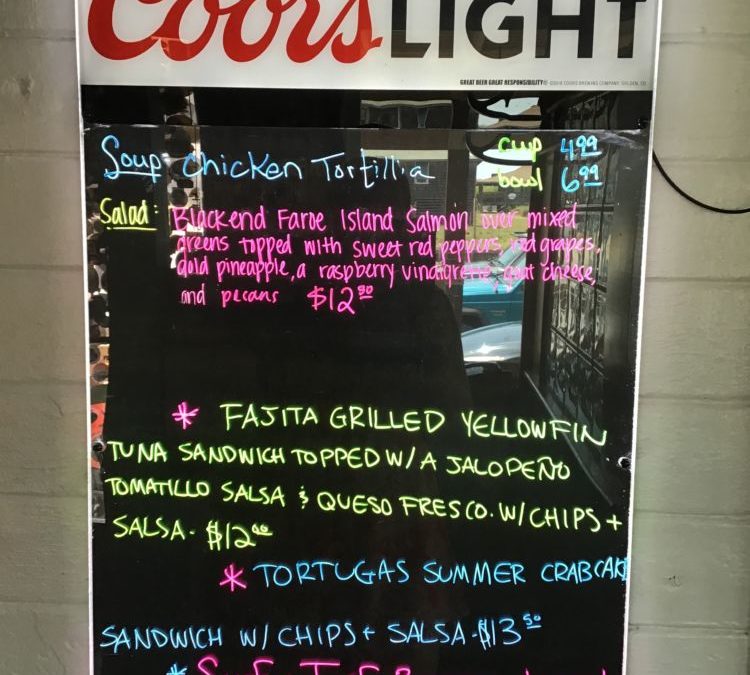 Coors LIGHT
GREAT BEER GREAT RESPONSIBILITY®
Soup: Chicken Tortillia cup 4.99
bowl 6.99
Salad: Blackend Faroe Island Salmon over mixed
greens topped with sweet red peppers, red grapes,
gold pineapple, a raspberry vinaigrette, goat cheese,
and pecans $12.50
* FAJITA GRILLED YELLOWFIN
TUNA SANDWICH TOPPED W/ A JALOPEÑO
TOMATILLO SALSA & QUESO FRESCO. W/ CHIPS +
SALSA - $12.00
* TORTUGAS SUMMER CRABCAKE
SANDWICH W/ CHIPS + SALSA - $13.50
*